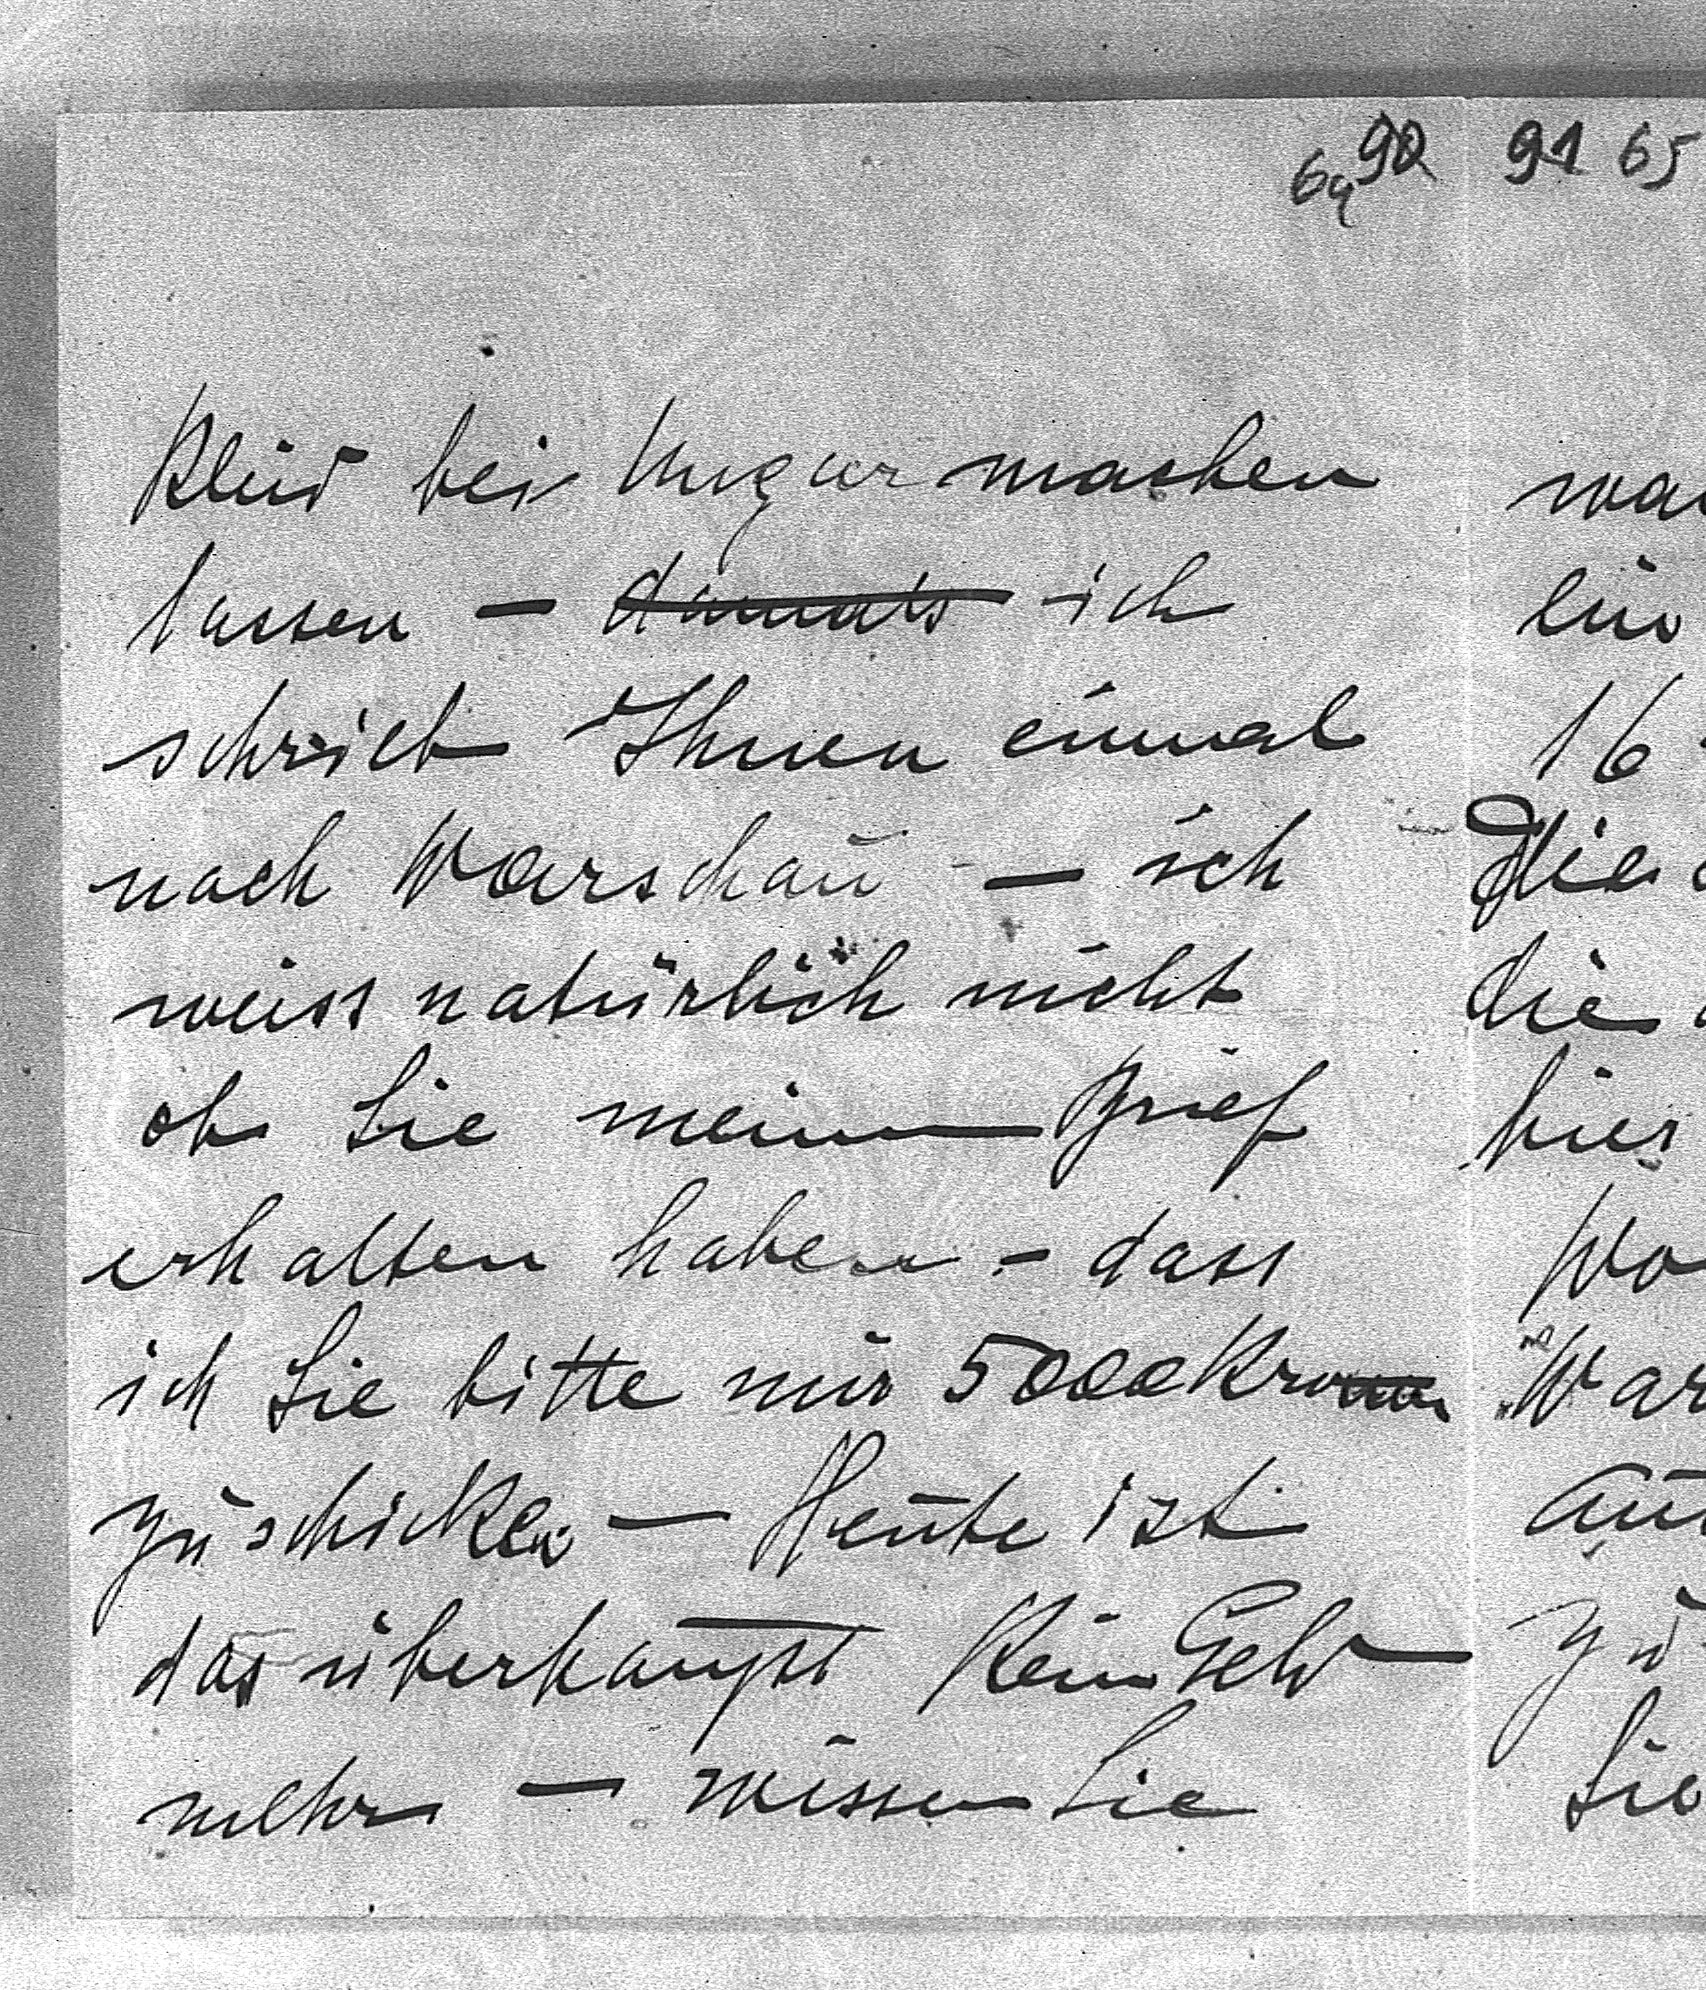 64 90 91 65
Kleid bei Ungar machen
lassen – damals ich
schrieb Ihnen einmal
nach Warschau – ich
weiss natürlich nicht
ob Sie meinen Brief
erhalten haben – dass
ich Sie bitte mir 5000 Kronen
zu schicken – Heute ist
das überhaupt kein Geld
mehr – wissen Sie
16
die
hier
Wo
War
zu
Sie